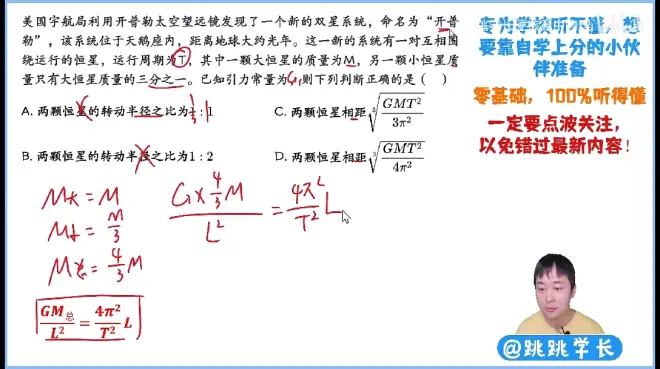 美国宇航局利用开普勒太空望远镜发现了一个新的双星系统，命名为“开普
勒”，该系统位于天鹅座内，距离地球大约光年。这一新的系统有一对互相围
绕运行的恒星，运行周期为T，其中一颗大恒星的质量为M，另一颗小恒星质
量只有大恒星质量的三分之一。已知引力常量为G，则下列判断正确的是（ ）
A. 两颗恒星的转动半径之比为1:1
C. 两颗恒星相距∛(GMT²/3π²)
B. 两颗恒星的转动半径之比为1:2
D. 两颗恒星相距∛(GMT²/4π²)
M大 = M
M小 = M/3
M总 = 4/3 M
GM总/L² = 4π²/T² L
G×4/3M/L² = 4π²/T² L
专为学校听不懂，想
要靠自学上分的小伙
伴准备
零基础，100%听得懂
一定要点波关注，
以免错过最新内容！
@跳跳学长